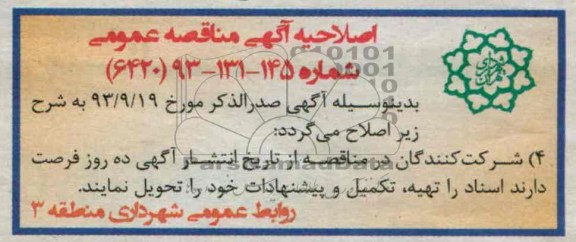 اصلاحیه آگهی مناقصه عمومی
شماره ۱۴۵-۱۳۱-۹۳ (۶۴۲۰)
بدینوسیله آگهی صدرالذکر مورخ ۹۳/۹/۱۹ به شرح
زیر اصلاح می‌گردد:
۴) شرکت‌کنندگان در مناقصه از تاریخ انتشار آگهی ده روز فرصت
دارند اسناد را تهیه، تکمیل و پیشنهادات خود را تحویل نمایند.
روابط عمومی شهرداری منطقه ۳